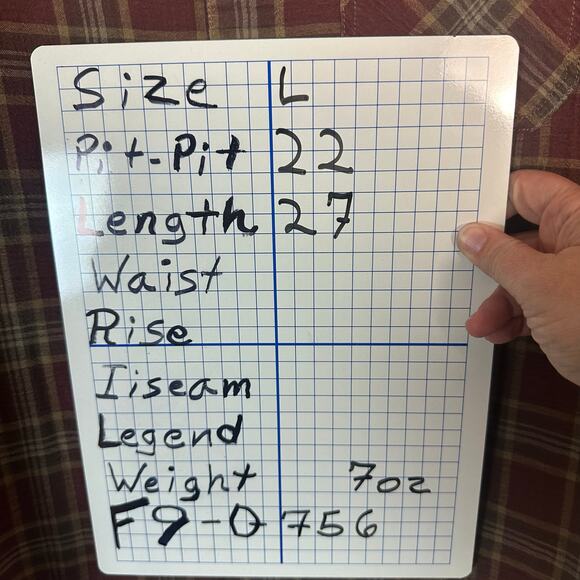 Size L
Pit-Pit 22
Length 27
Waist
Rise
Iiseam
Legend
Weight 7oz
F9-0756